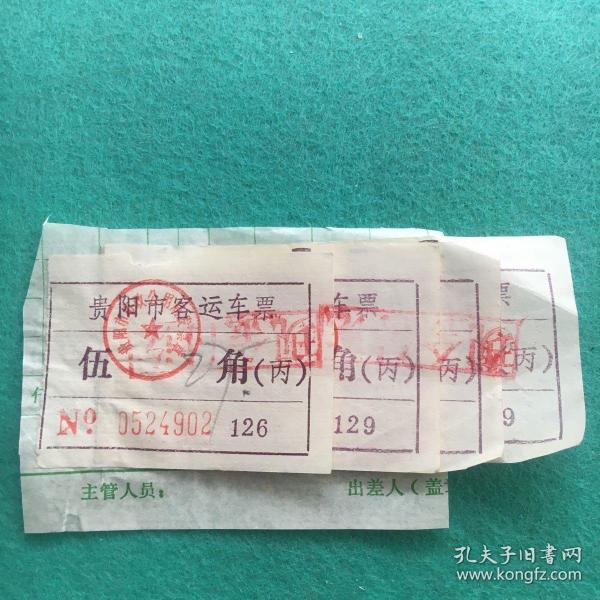 贵阳市客运车票
伍角(丙)
No 0524902 126
车票
角(丙)
129
丙)
票
丙)
9
主管人员:
出差人(盖章
孔夫子旧书网
www.kongfz.com